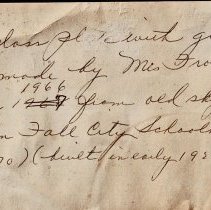 glass plate with g
made by Mis Fro
1966
1967 from old sk
n Fall City Schools
0) (built in early 19